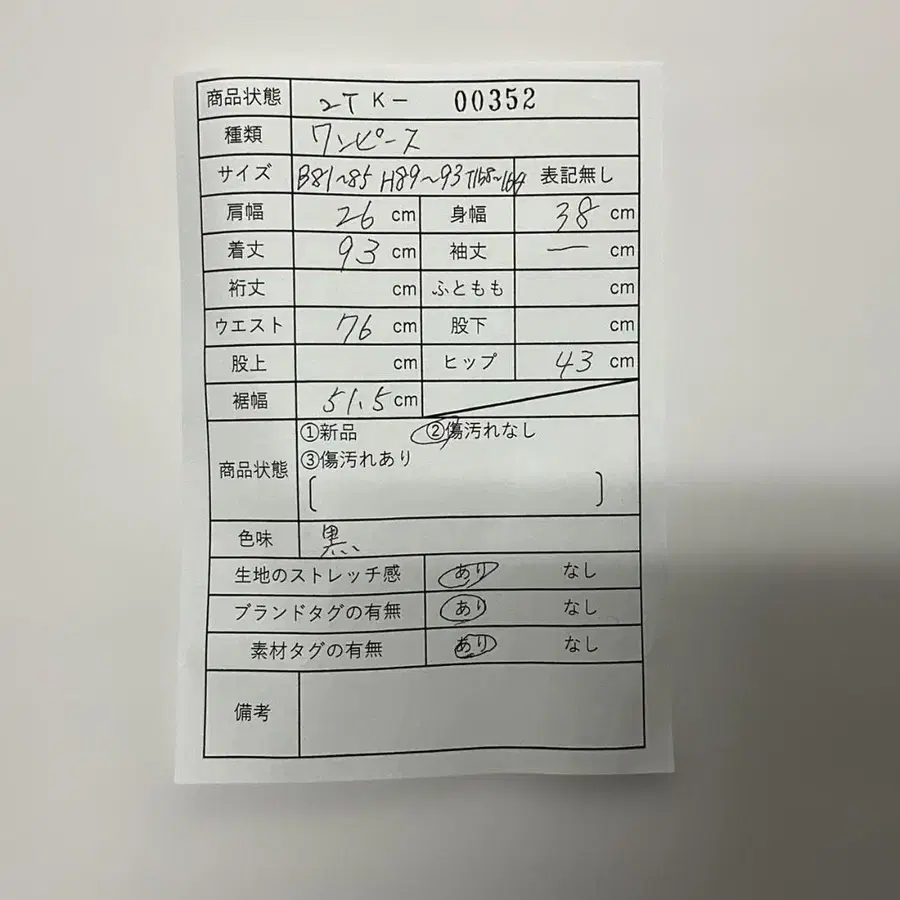 商品状態 2T K- 00352
種類 ワンピース
サイズ B81~85 H89~93 T168~169 表記無し
肩幅 26 cm 身幅 38 cm
着丈 93 cm 袖丈 — cm
裄丈 cm ふともも cm
ウエスト 76 cm 股下 cm
股上 cm ヒップ 43 cm
裾幅 51.5 cm
商品状態 ①新品 ②傷汚れなし
③傷汚れあり
[ ]
色味 黒
生地のストレッチ感 あり なし
ブランドタグの有無 あり なし
素材タグの有無 あり なし
備考